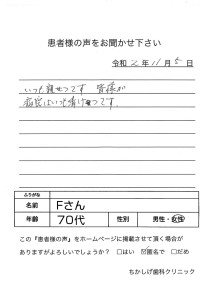 患者様の声をお聞かせ下さい
令和 2年 11月 5日
いつも親せつです 皆様が
ふりがな
名前 Fさん
年齢 70代 性別 男性・女性
この『患者様の声』をホームページに掲載させて頂く場合が
ありますがよろしいでしょうか？ □はい ☑匿名で □だめ
ちかしげ歯科クリニック